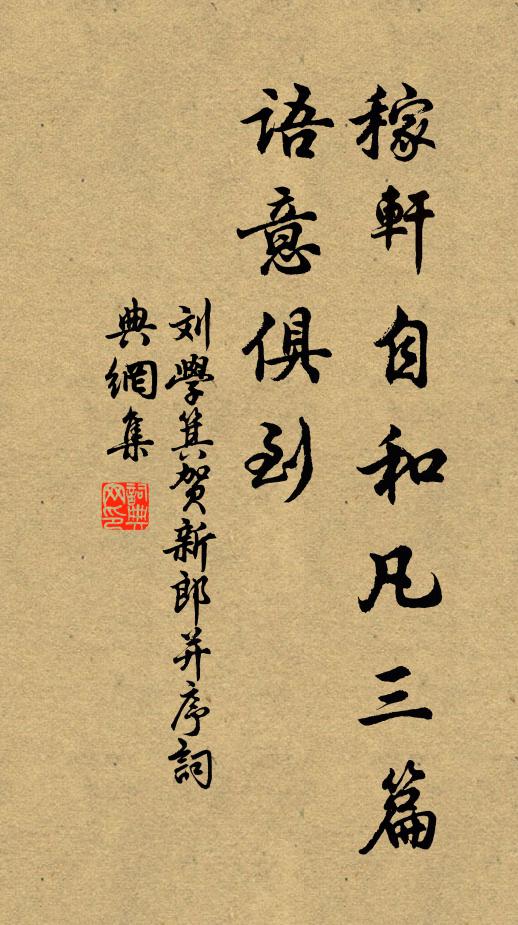 稼軒自和凡三篇
语意俱到
刘學箕賀新郎并序詞
典網集
詞典网印